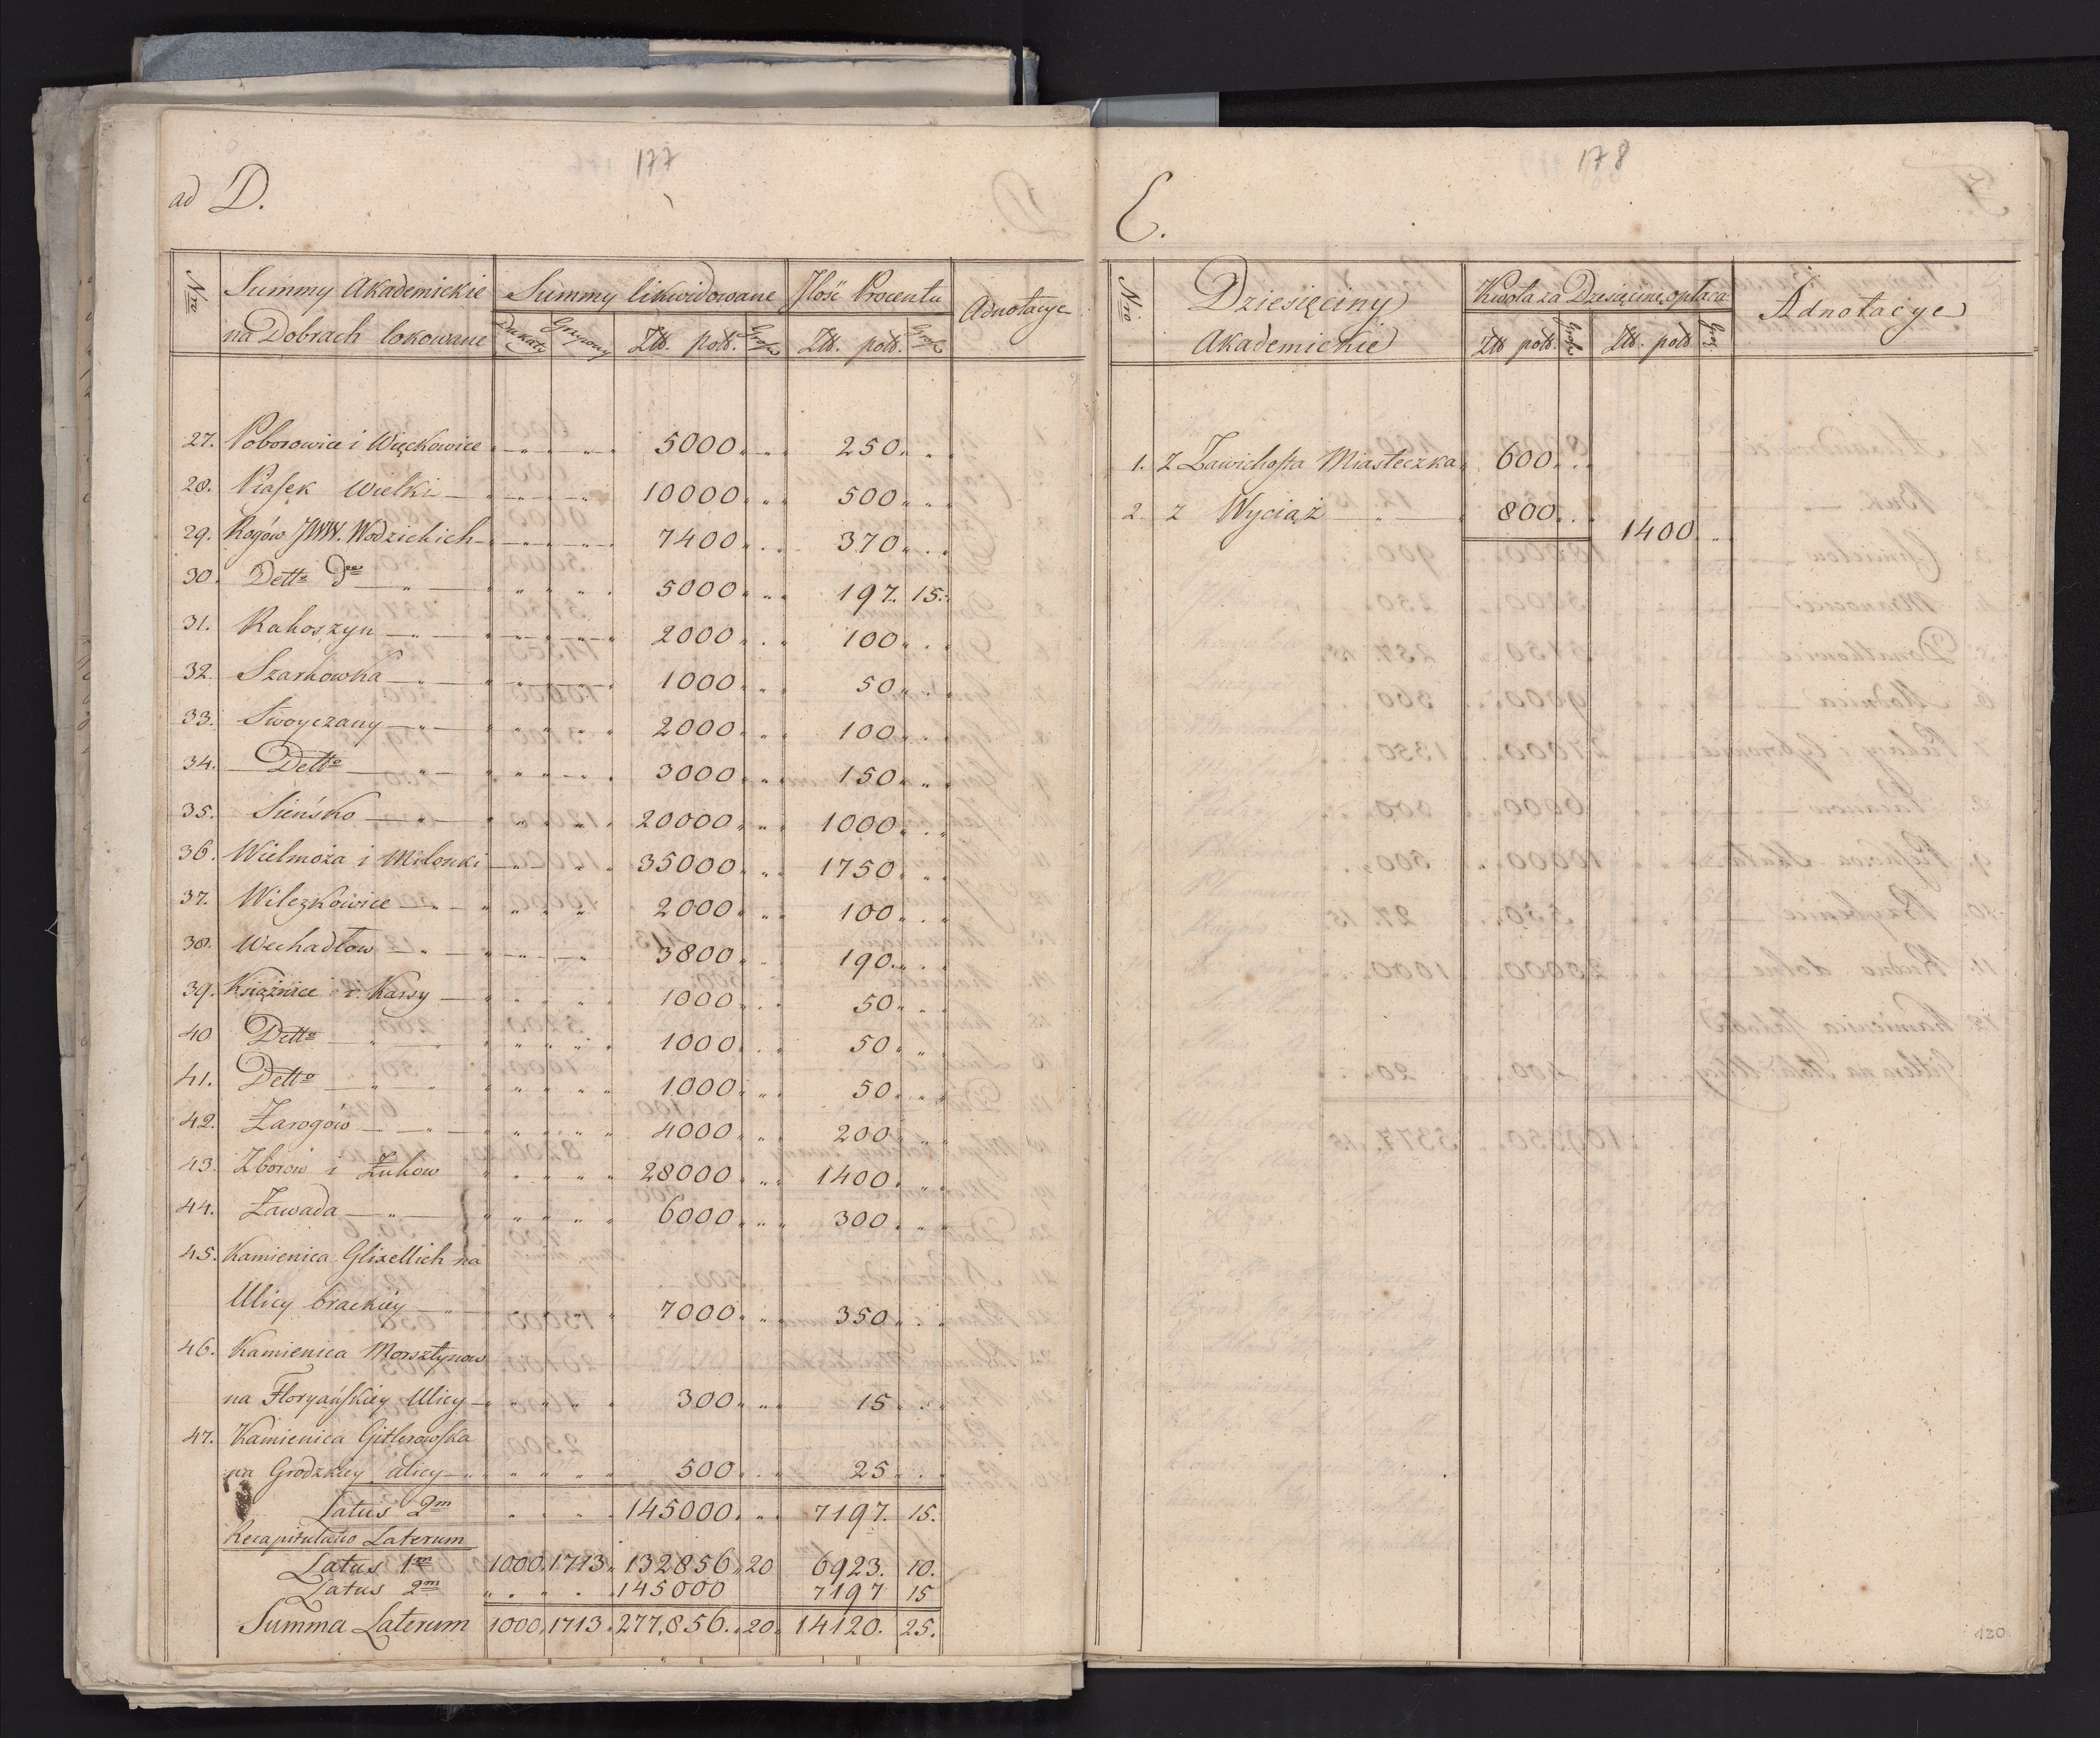 177
ad D.
Nro
Summy Akademickie
na Dobrach lokowane
Summy likwidowane
Dukaty
Grzywny
Złł. pols.
Grosze
Ilość Procentu
Złł. pols.
Grosze
Adnotacye
27. Poborowice i Więckowice 5000 250
28. Piasek Wielki 10000 500
29. Rogów JWW. Wodzickich 7400 370
30. Detto dto 5000 197. 15.
31. Rakoszyn 2000 100
32. Szarkowka 1000 50
33. Swoyczany 2000 100
34. Detto 3000 150
35. Sieńsko 20000 1000
36. Wielmoża i Milonki 35000 1750
37. Wilczkowice 2000 100
38. Wechadłow 3800 190
39. Książnice i Karsy 1000 50
40 Detto 1000 50
41. Detto 1000 50
42. Żarogów 4000 200
43. Zborow i Żukow 28000 1400
44. Zawada 6000 300
45. Kamienica Glixellich na
Ulicy brackiéy 7000 350
46. Kamienica Morsztynow
na Floryańskiey Ulicy 300 15
47. Kamienica Gitlerowska
na Grodzkiey ulicy 500 25
Latus 2m 145000 7197. 15.
Recapitulatio Laterum
Latus 1m 1000 1713 132856 20 6923. 10.
Latus 2m 145000 7197 15
Summa Laterum 1000 1713 277,856. 20 14120. 25.
178
E.
Nro
Dziesięciny
Akademickie
Kwota za Dziesięcinę opłaca
Złł pols.
Grosze
Złł. pols
Grosz.
Adnotacye
1. Z Zawichosta Miasteczka 600
2. z Wyciąż 800 1400
120